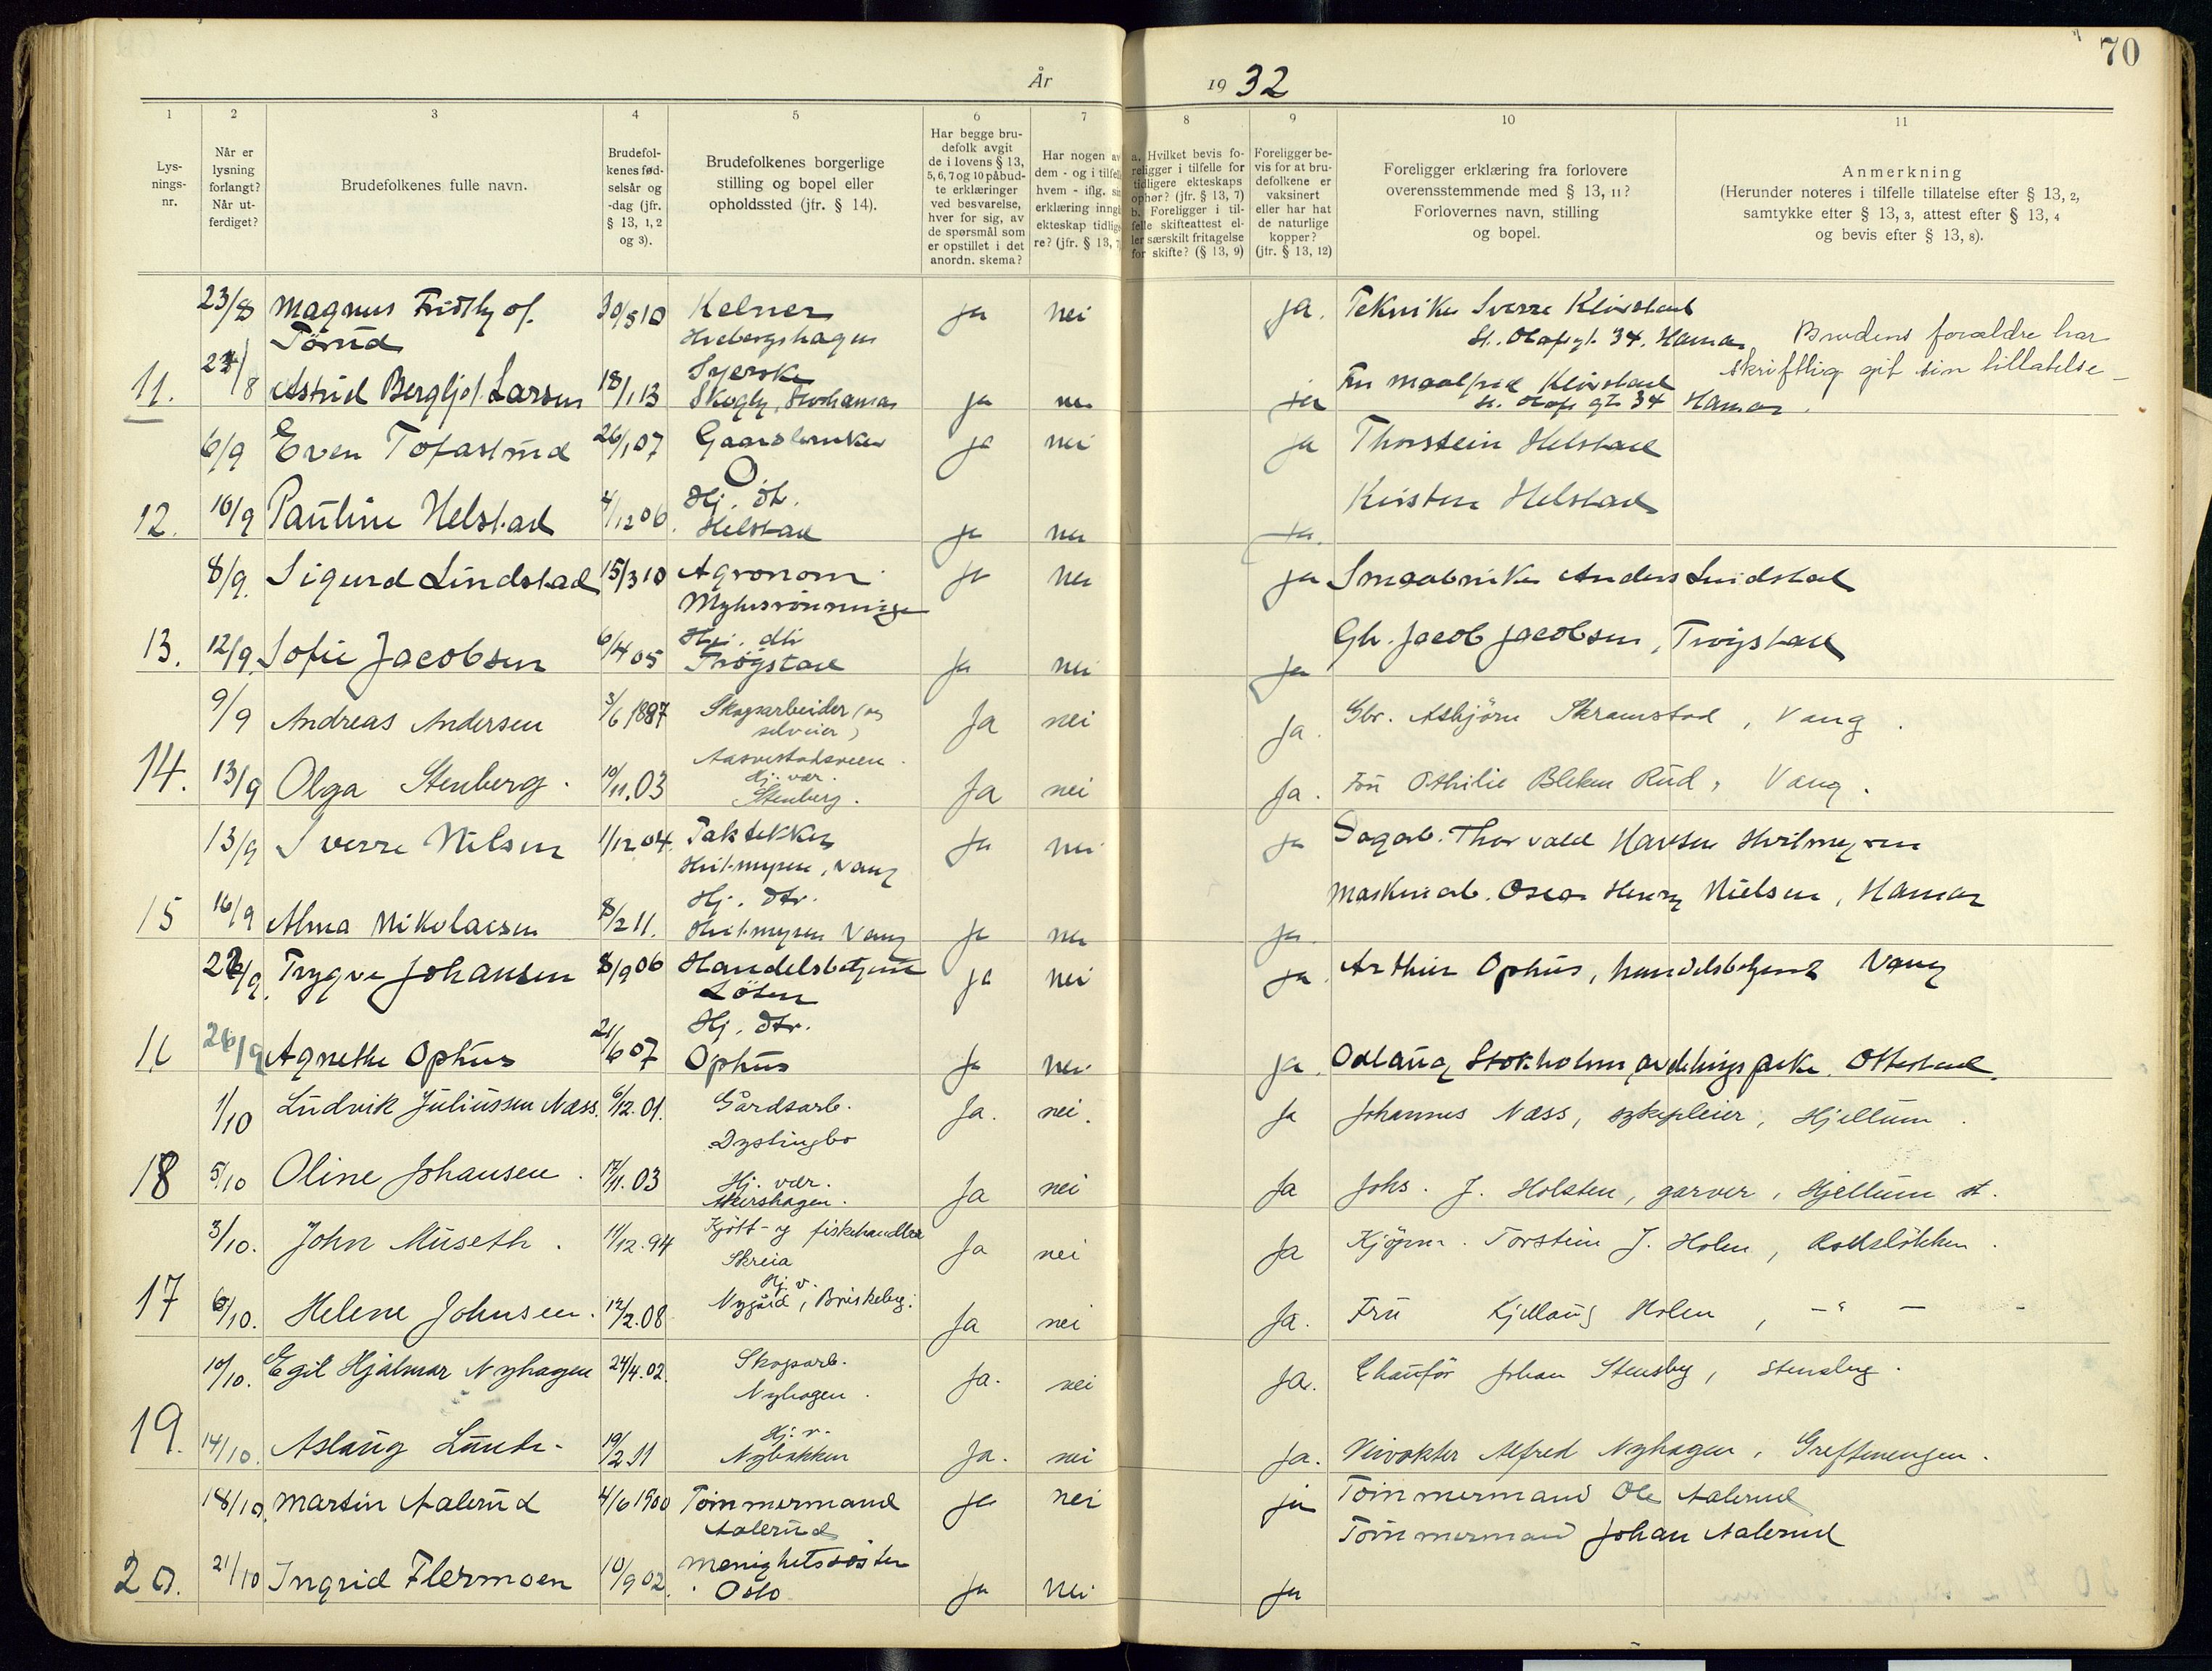 70
År 1932
1 2 3 4 5 6 7 8 9 10 11
Lys-
nings-
nr.
Når er
lysning
forlangt?
Når ut-
ferdiget?
Brudefolkenes fulle navn.
Brudefol-
kenes fød-
selsår og
-dag (jfr.
§ 13, 1, 2
og 3).
Brudefolkenes borgerlige
stilling og bopel eller
opholdssted (jfr. § 14).
Har begge bru-
defolk avgit
de i lovens § 13,
5, 6, 7 og 10 påbud-
te erklæringer
ved besvarelse,
hver for sig, av
de spørsmål som
er opstillet i det
anordn. skema?
Har nogen av
dem - og i tilfelle
hvem - iflg. sin
erklæring inngått
ekteskap tidlige-
re? (jfr. § 13, 7)
a. Hvilket bevis fo-
religger i tilfelle for
tidligere ekteskaps
ophør? (jfr. § 13, 7)
b. Foreligger i til-
felle skifteattest el-
ler særskilt fritagelse
for skifte? (§ 13, 9)
Foreligger be-
vis for at bru-
defolkene er
vaksinert
eller har hat
de naturlige
kopper?
(jfr. § 13, 12)
Foreligger erklæring fra forlovere
overensstemmende med § 13, 11?
Forlovernes navn, stilling
og bopel.
Anmerkning
(Herunder noteres i tilfelle tillatelse efter § 13, 2,
samtykke efter § 13, 3, attest efter § 13, 4
og bevis efter § 13, 8).
23/8 Magnus Fridthjof 30/5 10 Kelner ja nei ja. Tekniker Sverre Klivstad
Törud Hvebergshagen St. Olafsgt. 34. Hamar Brudens forældre har
skriftlig git sin tillatelse
Syerske
11. 8 Astrid Bergljot Larsen 18/1 13 Skogly, Storhamar ja nei ja Fru Klivstad
St. Olafs gt 34 Hamar.
6/9 Even Tofastrud 26/1 07 Gaardbruker ja nei ja Thorstein Helstad
Hj. dt. Kirsten Helstad
12. 10/9 Pauline Helstad 4/12 06. Helstad ja nei ja.
8/9. Sigurd Lindstad 15/3 10 Agronom ja nei ja Smaabruker Anders Lindstad
Hj. dtr Gbr. Jacob Jacobsen, Trøgstad
13. 12/9. Sofie Jacobsen 6/4 05 Trøgstad ja nei ja
9/9 Andreas Andersen 3/6 1887 Skogsarbeider (og Ja nei ja. Gbr. Asbjörn Skramstad, Vang.
selveier)
Hj. vær.
14. 13/9 Olga Stenberg. 10/11.03 Stenberg. Ja nei Ja. Fru Othilie Bleken Rud, Vang.
13/9 Sverre Nilsen 1/12 04. Taktekker ja nei ja Dagarb. Thorvald Hansen Hvitmyren
Hvitmyren, Vang
Hj. dtr. Maskinarb. Oscar Henry Nielsen, Hamar
15 16/9 Alma Nikolaisen 8/2 11. Hvitmyren Vang ja nei ja
22/9. Trygve Johansen 8/9 06 Handelsbetjent ja nei ja. Arthur Ophus, handelsbetjent Vang
Löten
Hj. dtr.
16 26/9 Agnethe Ophus 21/6 07 Ophus ja nei ja. Odlaug Stokholm, Ottestad.
1/10 Ludvik Juliussen Næss. 6/12.01. Gårdsarb. Ja. nei. Ja Johannes Næss, sykepleier, Hjellum.
Dystingbo
Hj. vær.
18 5/10 Oline Johansen. 17/11.03 Akershagen. Ja nei Ja Johs. J. Holsten, garver, Hjellum st.
3/10. John Museth. 11/12.94 Kjött- og fiskehandler Ja nei Ja Kjøpm. Torstein J. Holen,
Skreia
Hj. v.
17 6/10. Helene Johnsen. 12/2.08 Nygård, Briskeby. Ja nei Ja. Fru Kjellaug Holen, -"-
10/10. Egil Hjalmar Nyhagen 24/4.02. Skogsarb. Ja. nei Ja. Chauför Johan Stensby, Stensby.
Nyhagen.
Hj. v.
19. 14/10. Aslaug Lunde. 19/2 11 Nybakken Ja. nei Ja. Alfred Nyhagen, Greftenengen.
18/10. Martin Aalerud 4/6 1900 Tömmermand ja nei ja Tömmermand Ole Aalerud
Aalerud Tömmermand Johan Aalerud
Menighetssøster
20. 21/10 Ingrid Flermoen 10/9 02 Oslo ja nei ja